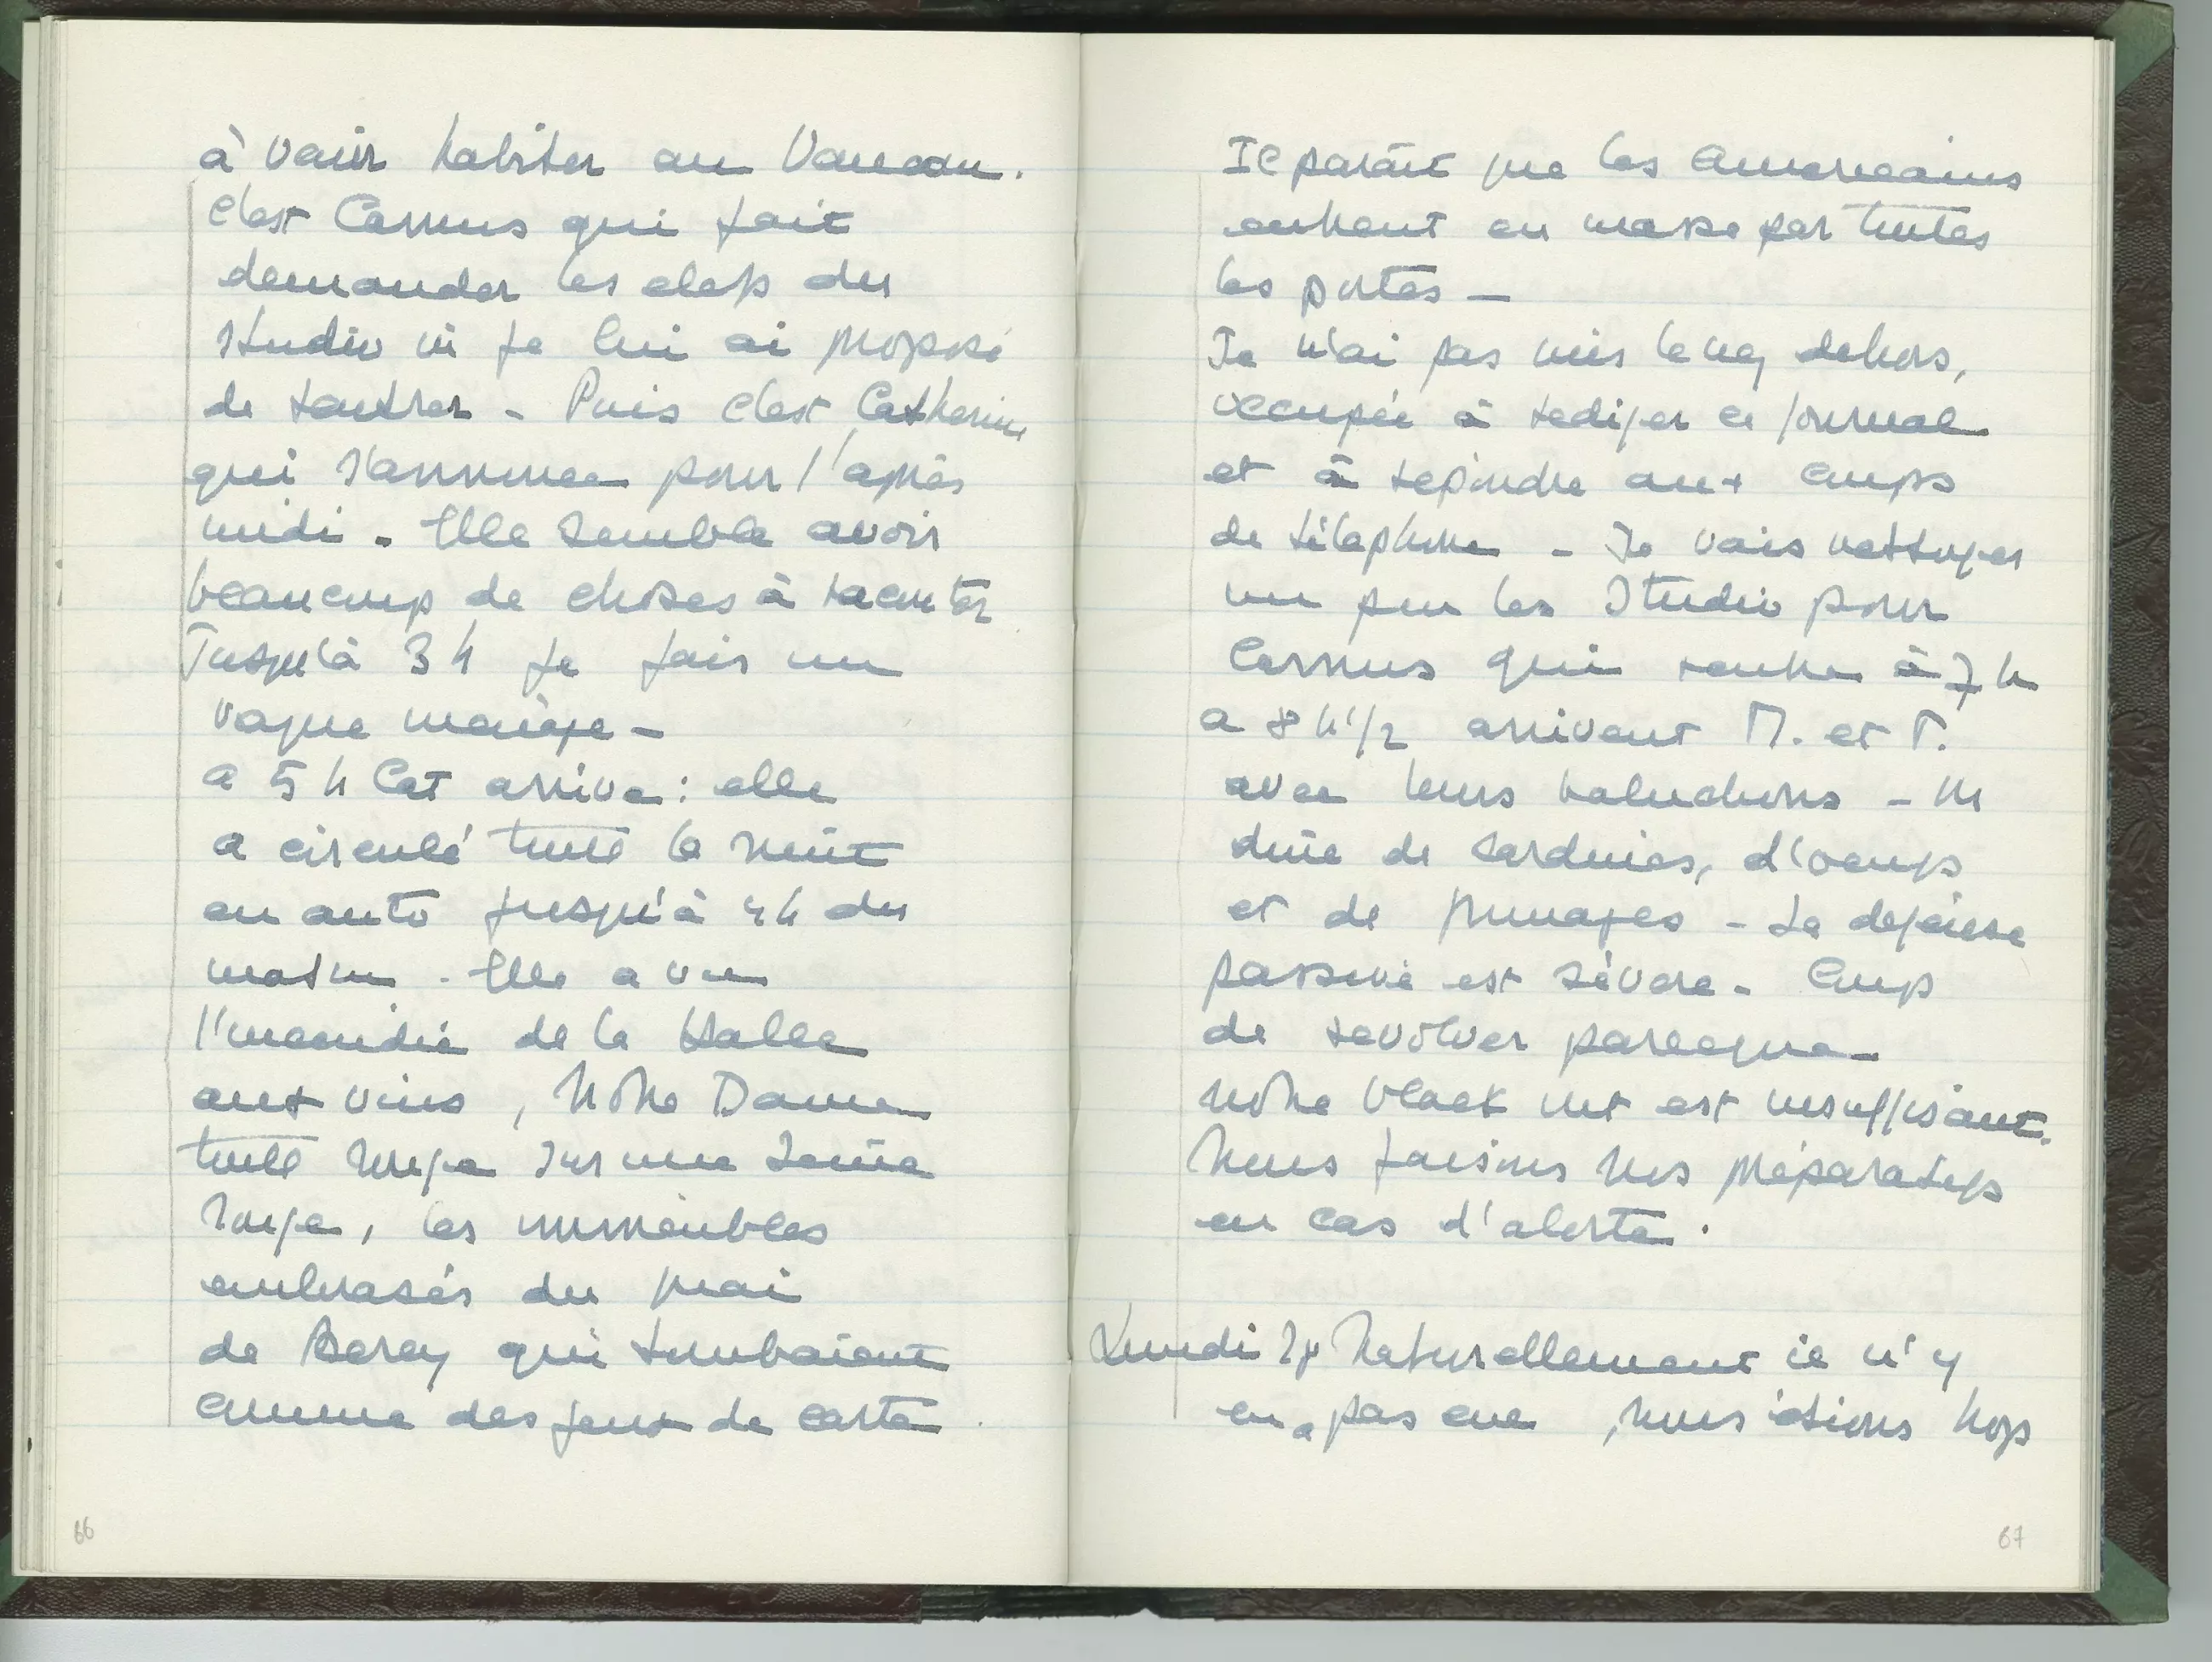 à venir habiter au Vaneau.
C'est Camus qui fait
demander les clefs du
studio où je lui ai proposé
de rentrer - Puis c'est Catherine
qui s'annonce pour l'après
midi. Elle semble avoir
beaucoup de choses à raconter
Jusqu'à 3 h je fais un
vague ménage -
a 5 h Cat arrive : elle
a circulé toute la nuit
en auto jusqu'à 4 h du
matin. Elle a vu
l'incendie de la Halle
aux vins, Notre Dame
toute rouge sur une Seine
rouge, les immeubles
embrasés du quai
de Bercy qui tombaient
comme des jeux de carte.
66
Il paraît que les américains
entrent en masse par toutes
les portes -
Je n'ai pas mis le nez dehors,
occupée à rediger ce journal
et à repondre aux coups
de téléphone - Je vais nettoyer
un peu les Studio pour
Camus qui rentre à 7 h
a 8 h 1/2 arrivent M. et P.
avec leurs baluchons - On
dine de sardines, d'oeufs
et de fromages - La défense
passive est sévère - Coups
de revolver parceque
notre black out est insuffisant.
Nous faisons nos préparatifs
en cas d'alerte.
Lundi 28 Naturellement il n'y
en a pas eue, nous étions trop
67